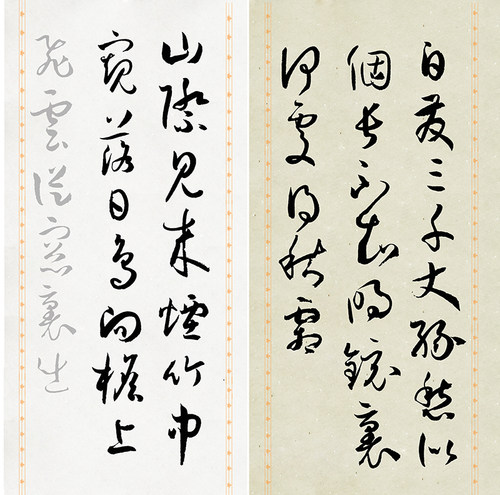 白髮三千丈緣愁似
個長不知明鏡裏
何處得秋霜
山際見來煙竹中
窺落日鳥向檐上
飛雲從窗裏出